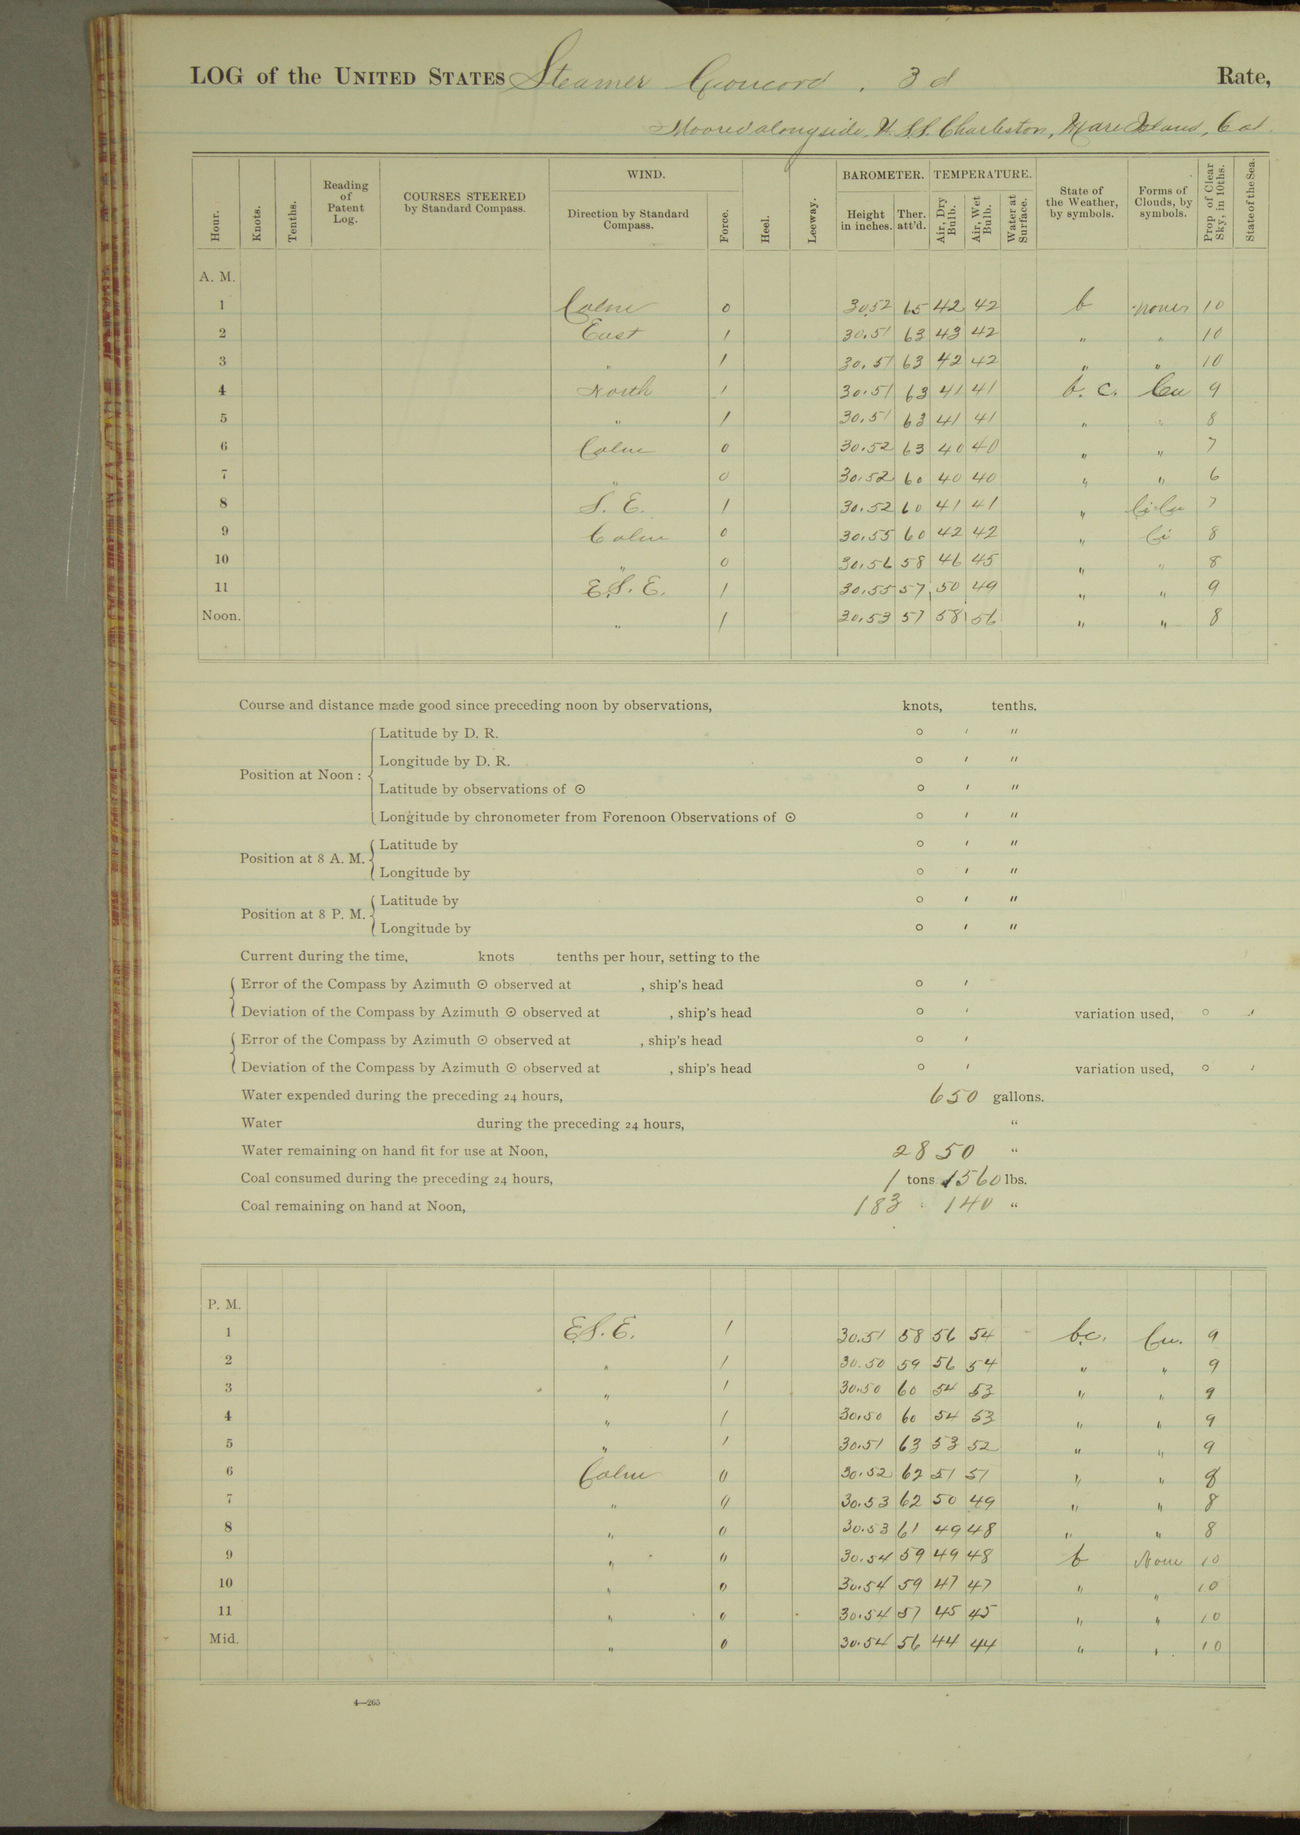 LOG of the UNITED STATES Steamer Concord, 3d Rate,
Moored alongside U.S.S. Charleston, Mare Island, Cal.
Hour. Knots. Tenths. Reading of Patent Log. COURSES STEERED by Standard Compass. WIND. Direction by Standard Compass. Force. Heel. Leeway. BAROMETER. Height in inches. Ther. att'd. TEMPERATURE. Air, Dry Bulb. Air, Wet Bulb. Water at Surface. State of the Weather, by symbols. Forms of Clouds, by symbols. Prop. of Clear Sky, in 10ths. State of the Sea.
A. M.
1 Calm 0 30.52 65 42 42 b None 10
2 East 1 30.51 63 43 42 " " 10
3 " 1 30.51 63 42 42 " " 10
4 North 1 30.51 63 41 41 b. c. Cu 9
5 " 1 30.51 63 41 41 " " 8
6 Calm 0 30.52 63 40 40 " " 7
7 " 0 30.52 60 40 40 " " 6
8 S. E. 1 30.52 60 41 41 " Ci-Cu 7
9 Calm 0 30.55 60 42 42 " Ci 8
10 " 0 30.56 58 46 45 " " 8
11 E.S.E. 1 30.55 57 50 49 " " 9
Noon. " 1 30.53 57 58 56 " " 8
Course and distance made good since preceding noon by observations, knots, tenths.
Position at Noon :
Latitude by D. R. ° ' "
Longitude by D. R. ° ' "
Latitude by observations of ⊙ ° ' "
Longitude by chronometer from Forenoon Observations of ⊙ ° ' "
Position at 8 A. M.
Latitude by ° ' "
Longitude by ° ' "
Position at 8 P. M.
Latitude by ° ' "
Longitude by ° ' "
Current during the time, knots tenths per hour, setting to the
Error of the Compass by Azimuth ⊙ observed at , ship's head ° '
Deviation of the Compass by Azimuth ⊙ observed at , ship's head ° ' variation used, ° '
Error of the Compass by Azimuth ⊙ observed at , ship's head ° '
Deviation of the Compass by Azimuth ⊙ observed at , ship's head ° ' variation used, ° '
Water expended during the preceding 24 hours, 650 gallons.
Water during the preceding 24 hours, "
Water remaining on hand fit for use at Noon, 2850 "
Coal consumed during the preceding 24 hours, 1 tons 1560 lbs.
Coal remaining on hand at Noon, 183 " 140 "
P. M.
1 E.S.E. 1 30.51 58 56 54 bc. Cu. 9
2 " 1 30.50 59 56 54 " " 9
3 " 1 30.50 60 54 53 " " 9
4 " 1 30.50 60 54 53 " " 9
5 " 1 30.51 63 53 52 " " 9
6 Calm 0 30.52 62 51 51 " " 8
7 " 0 30.53 62 50 49 " " 8
8 " 0 30.53 61 49 48 " " 8
9 " 0 30.54 59 49 48 b None 10
10 " 0 30.54 59 47 47 " " 10
11 " 0 30.54 57 45 45 " " 10
Mid. " 0 30.54 56 44 44 " " 10
4—265